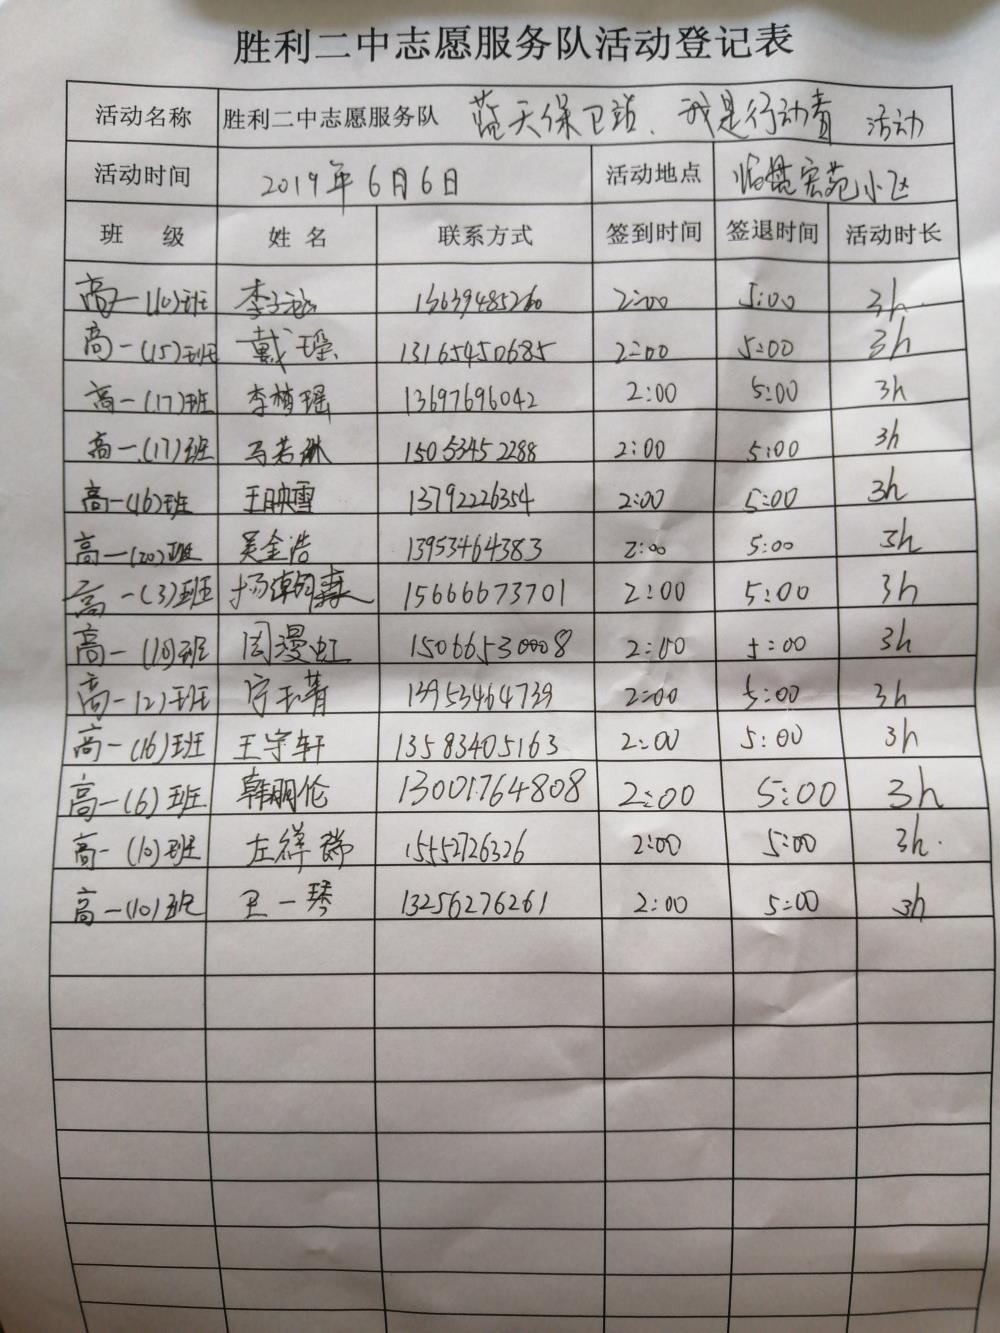 胜利二中志愿服务队活动登记表
活动名称 胜利二中志愿服务队 蓝天保卫站、我是行动者 活动
活动时间 2019年6月6日 活动地点 临盘宏苑小区
班 级 姓 名 联系方式 签到时间 签退时间 活动时长
高一(10)班 李子 13639485260 2:00 5:00 3h
高一(15)班 戴瑶 13165450685 2:00 5:00 3h
高一(17)班 李楠瑶 13697696042 2:00 5:00 3h
高一(17)班 马若琳 15053452288 2:00 5:00 3h
高一(16)班 王映雪 13792226354 2:00 5:00 3h
高一(20)班 吴金浩 13953464383 2:00 5:00 3h
高一(3)班 杨 森 15666673701 2:00 5:00 3h
高一(18)班 周漫虹 15066530008 2:00 5:00 3h
高一(2)班 宁玉菁 13953464739 2:00 5:00 3h
高一(16)班 王守轩 13583405163 2:00 5:00 3h
高一(6)班 韩朋伦 13001764808 2:00 5:00 3h
高一(10)班 左祥 15552726326 2:00 5:00 3h
高一(10)班 卫一琴 13256276261 2:00 5:00 3h